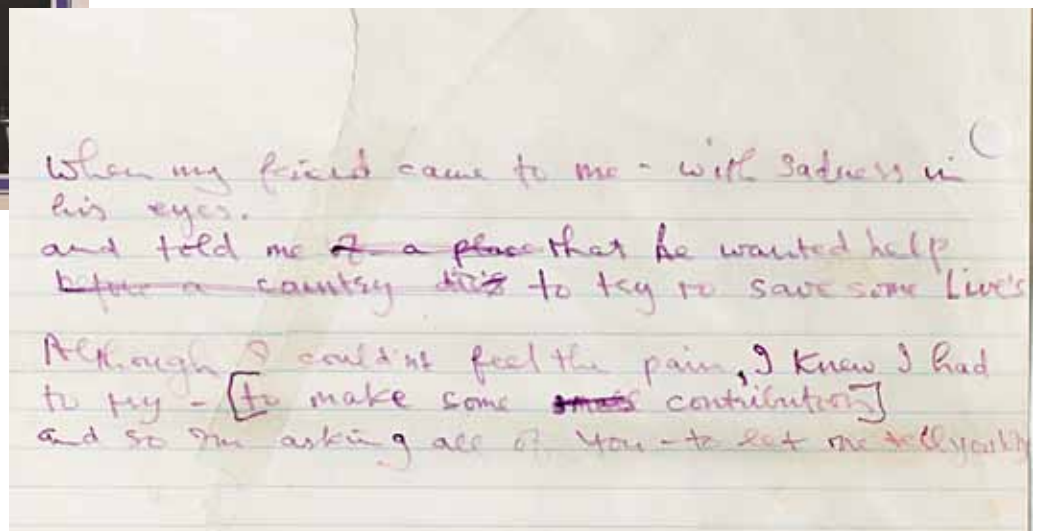 When my friend came to me - with Sadness in
his eyes.
and told me of a place that he wanted help
before a country dies to try to save some Live's
Although I couldn't feel the pain, I knew I had
to try - [to make some small contribution]
and so I'm asking all of you - to let me tell you